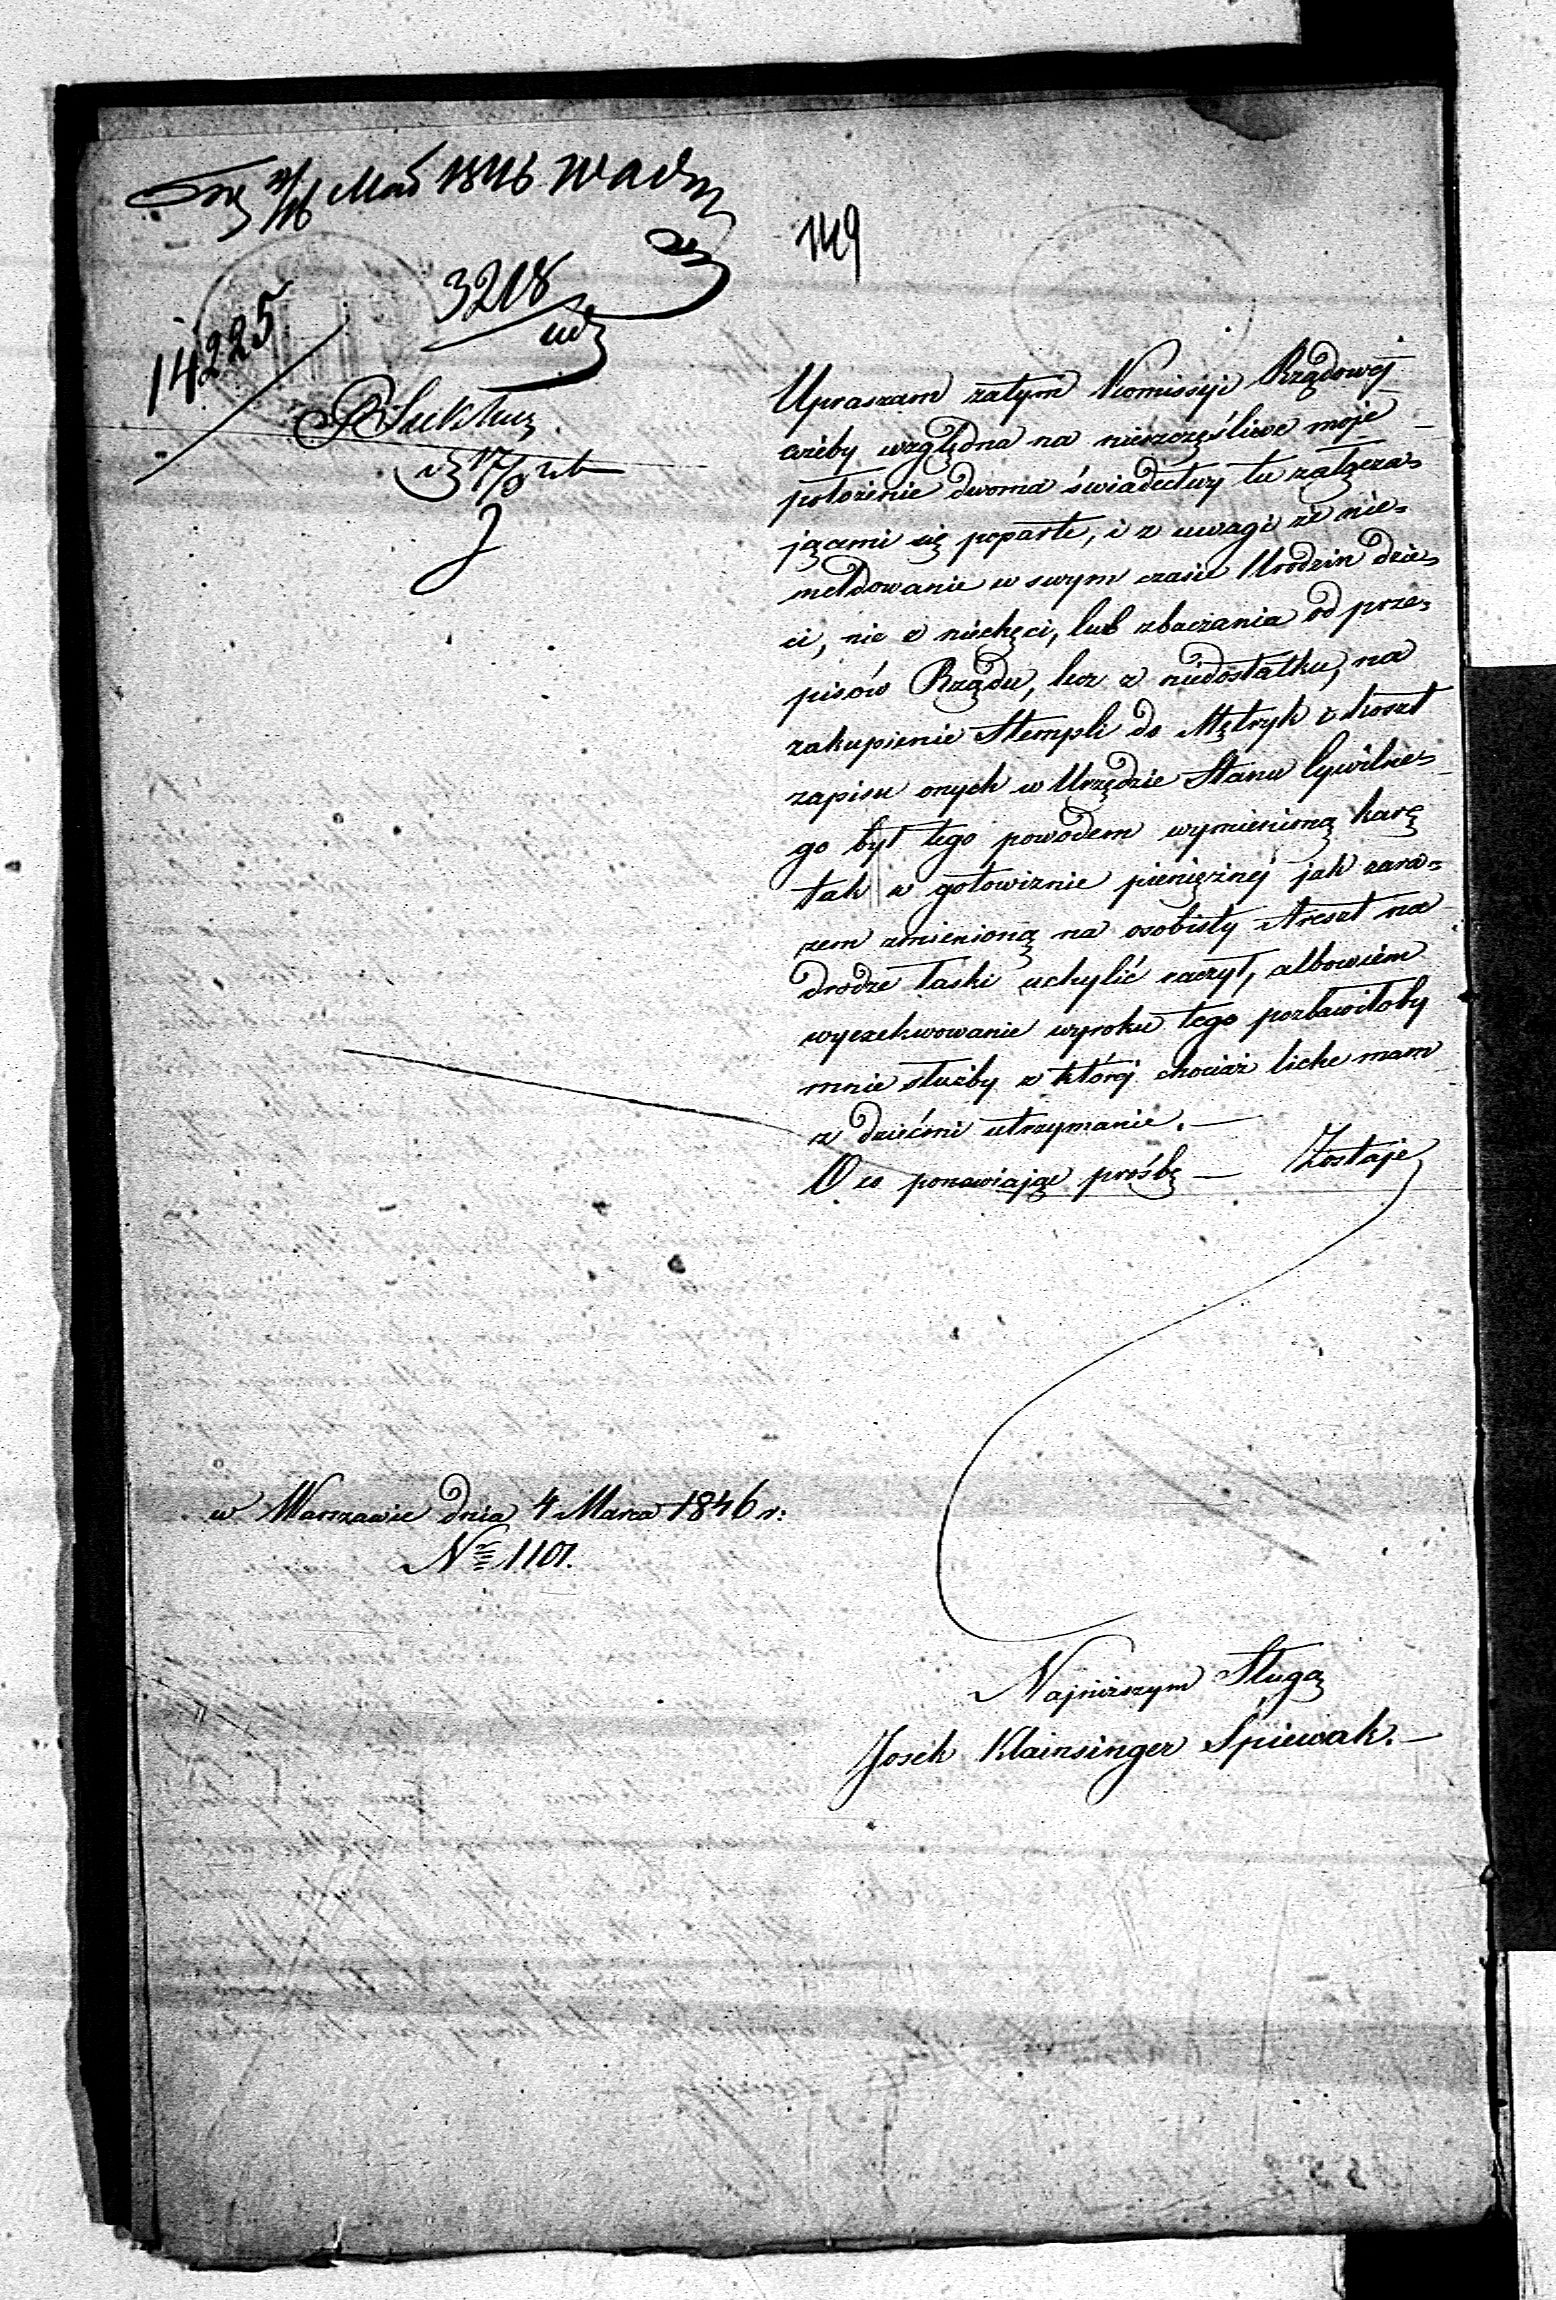 1846
149
3218
14225
17/3
Upraszam zatym Kommissyi Rządowej
ażeby względna na nieszczęśliwe moje
położenie dwoma świadectwy tu załącza=
jącemi się poparte, i z uwagi że nie=
meldowanie w swym czasie Urodzin dzie=
ci, nie z niechęci, lub zbaczania od prze=
pisów Rządu, lecz z niedostatku, na
zakupienie Stempli do Metryk i koszt
zapisu onych w Urzędzie Stanu Cywilne=
go był tego powodem wymienioną karę
tak w gotowiznie pieniężnej jak zara=
zem zmienioną na osobisty Areszt na
drodze łaski uchylić raczył, albowiem
wyexekwowanie wyroku tego pozbawiłoby
mnie służby z której chociaż liche mam
z dziećmi utrzymanie. —
O co ponawiając prośbę — Zostaję
w Warszawie dnia 4 Marca 1846 r:
Nr 1101.
Najniższym Sługą
Josek Klainsinger Śpiewak. —